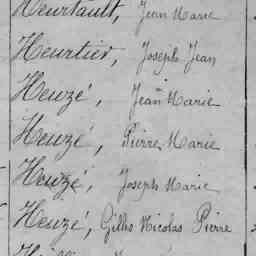 Heurtault, Jean Marie
Heurtier, Joseph Jean
Heuzé, Jean Marie
Heuzé, Pierre Marie
Heuzé, Joseph Marie
Heuzé, Gilles Nicolas Pierre